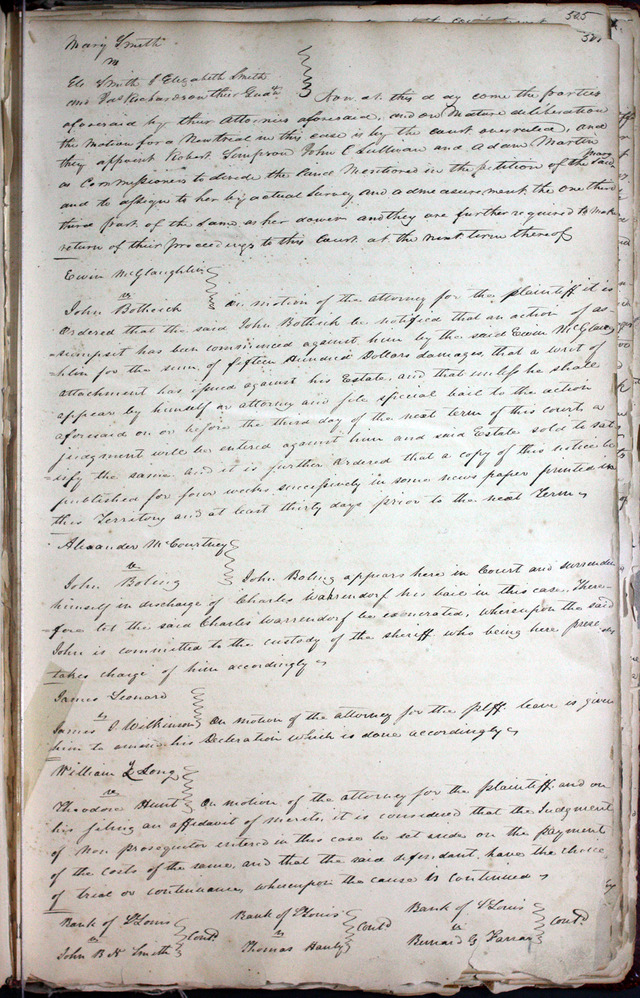 525
Mary Smith
vs
Eli Smith & Elizabeth Smith
and Jas Richardson their Guadn Now at this day come the parties
aforesaid by their Attornies aforesaid, and on mature deliberation
the motion for a Newtrial in this case is by the court overruled, and
they appoint Robert Simpson John C Sullivan and Adam Martin
as Commissioners to divide the Land Mentioned in the petition of the said Mary
and to assign to her by actual Survey and admeasurement the one third
third part of the same as her dower and they are further required to make
return of their proceedings to this Court at the next term thereof
Ewin McGlaughlin
vs
John Bothick On motion of the attorney for the plaintiff it is
Ordered that the said John Bothick be notified that an action of as-
sumpsit has been commenced against him by the said Ewin McGlaug
hlin for the sum of fifteen Hundred Dollars damages, that a writ of
attachment has issued against his Estate, and that unless he shall
appear by himself or attorney and file special bail to the action
aforesaid on or before the third day of the next term of this court, a
judgment will be entered against him and said Estate sold to sat-
isfy the same. and it is further Ordered that a copy of this notice be
published for four weeks successively in some news paper printed in
this Territory and at least thirty days prior to the next Term
Alexander McCourtney
vs
John Boling John Boling appears here in Court and surrenders
himself in discharge of Charles Warrendorf his bail in this case. There-
fore let the said Charles Warrendorf be exonerated, whereupon the said
John is committed to the custody of the sheriff who being here present
takes charge of him accordingly
James Leonard
vs
James J Wilkinson On motion of the attorney for the pltff. leave is given
him to amend his Declaration which is done accordingly
William L Long
vs
Theodore Hunt On motion of the attorney for the plaintiff and on
his filing an affidavit of merits, it is considered that the Judgment
of Non prosequitor entered in this case be set aside on the payment
of the costs of the same, and that the said defendant, have the choice
of trial or continuance, whereupon the cause is continued
Bank of St Louis
vs
John B N Smith Contd
Bank of St Louis
vs
Thomas Hanly Contd
Bank of St Louis
vs
Bernard G Farrar Contd